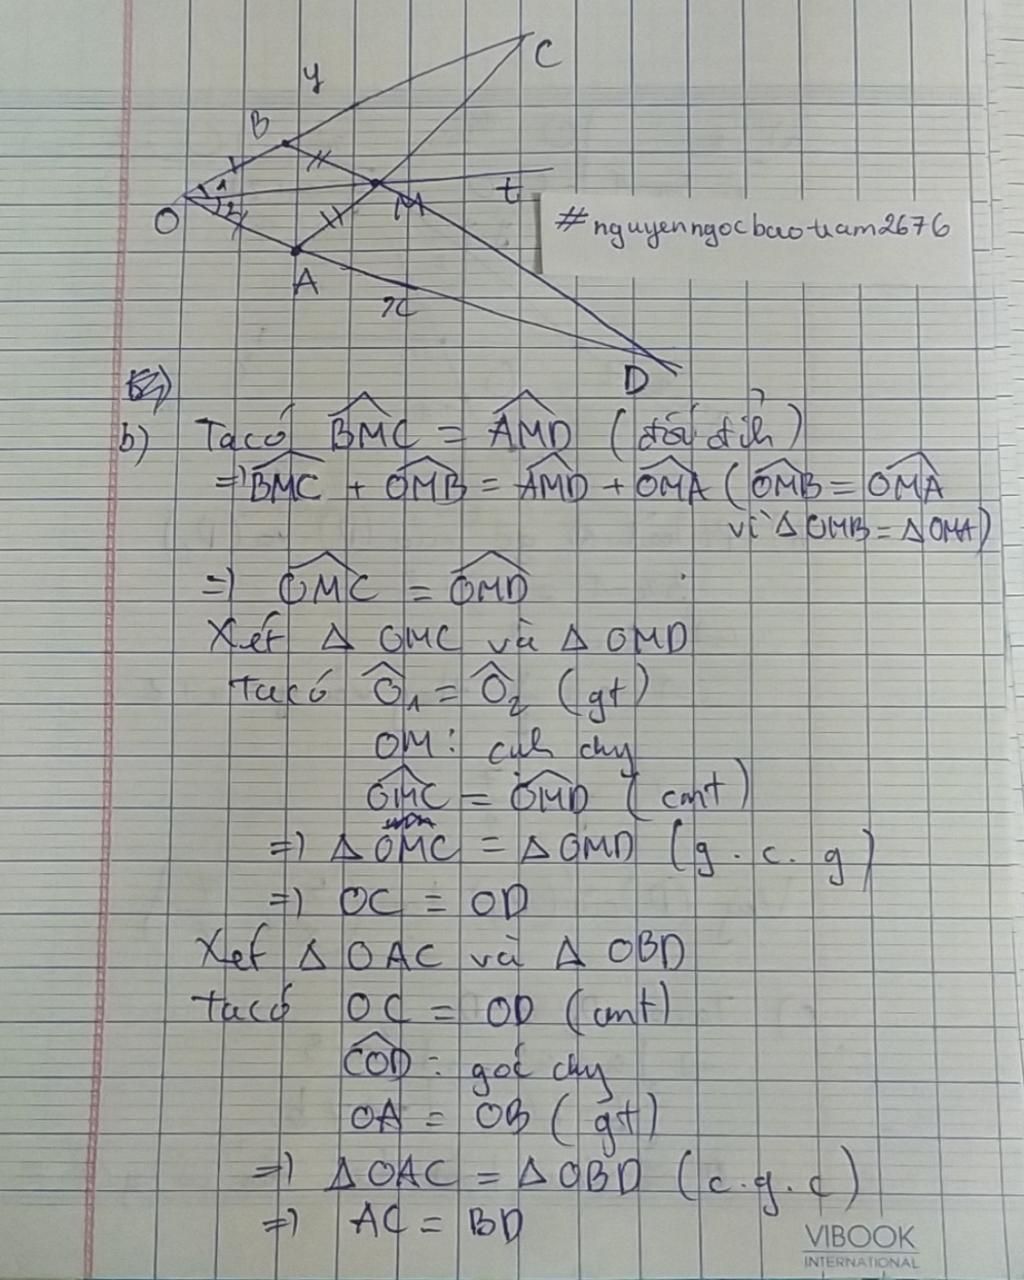 C
y
B
1
2
t
O
M
#nguyenngocbaotram2676
A
x
D
b) Ta có BMC = AMD (đối đỉh)
=) BMC + OMB = AMD + OMA (OMB = OMA
vì Δ OMB = Δ OMA)
=) OMC = OMD
Xét Δ OMC và Δ OMD
ta có Ô1 = Ô2 (gt)
OM : cạh chg
OMC = OMD (cmt)
=) Δ OMC = Δ OMD (g.c.g)
=) OC = OD
Xét Δ OAC và Δ OBD
ta có OC = OD (cmt)
COD : góc chg
OA = OB (gt)
=) Δ OAC = Δ OBD (c.g.c)
=) AC = BD
VIBOOK
INTERNATIONAL